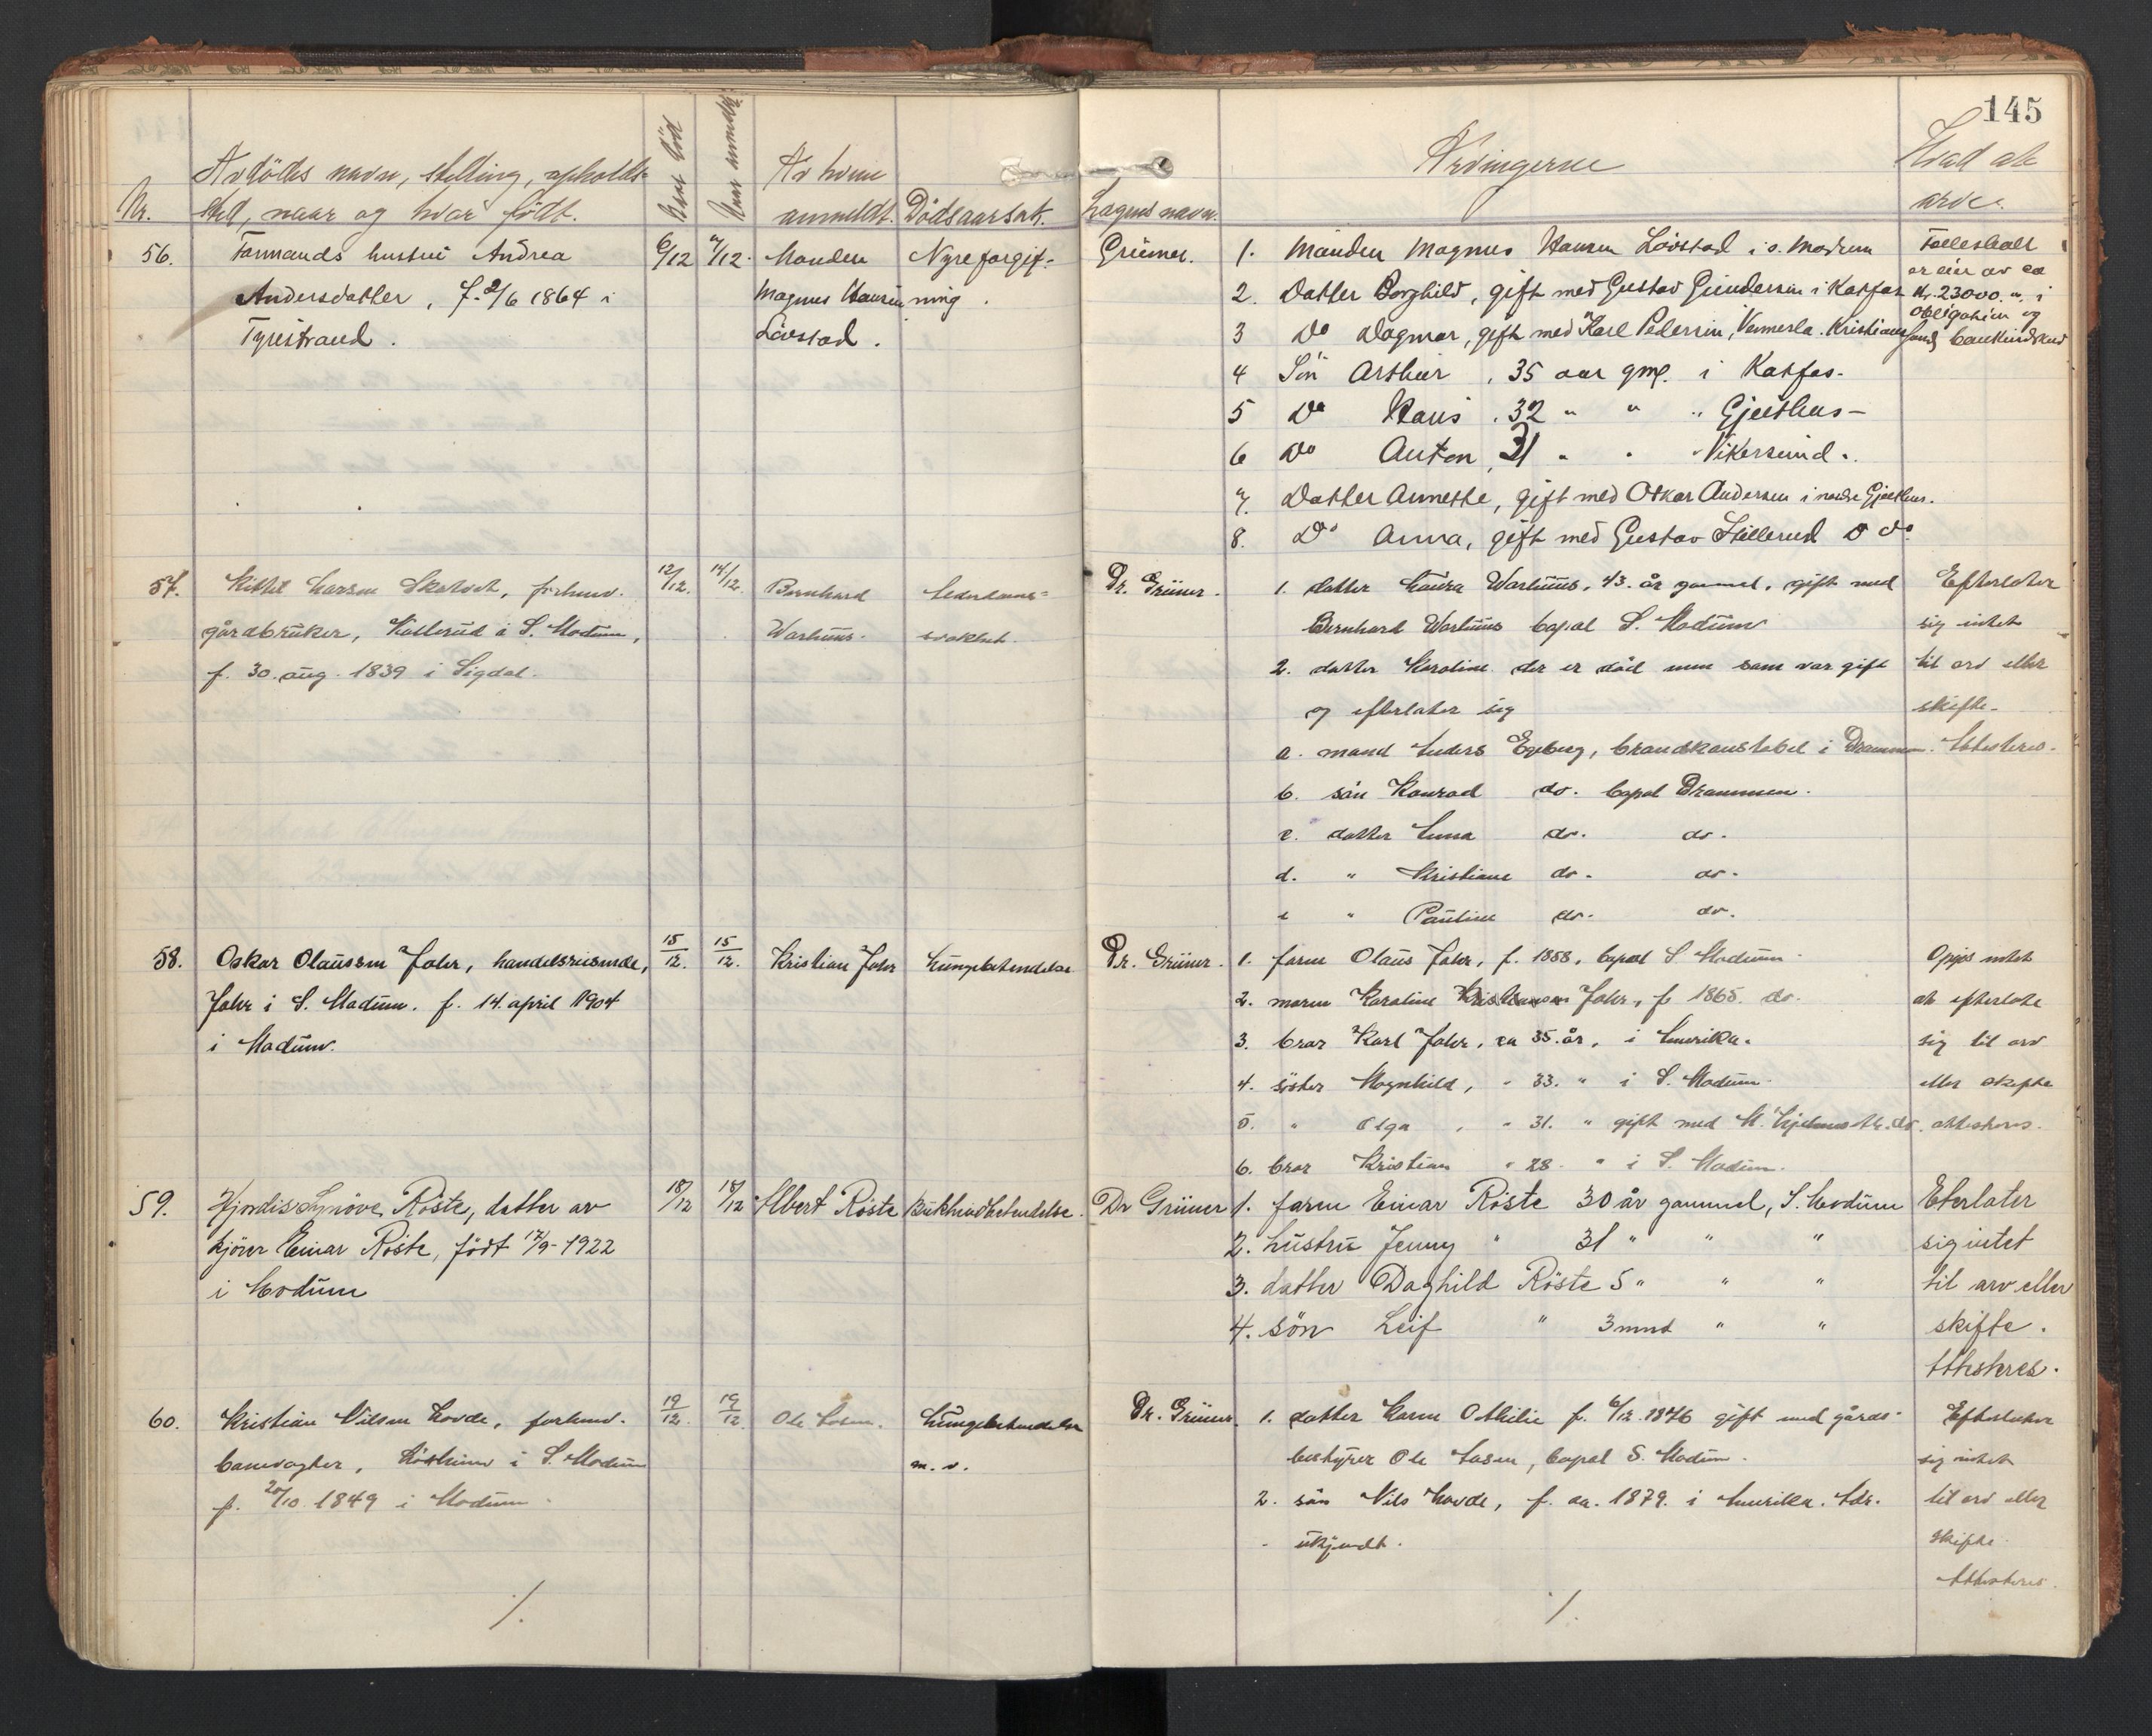 145
Avdödes navn, stilling, opholds-
Nr. sted, naar og hvor födt.
Naar död
Naar anmeldt
Av hvem
anmeldt.
Dödsaarsak.
Lægens navn.
Arvingerne
Hvad at
arve.
56. Formands hustru Andrea
Andersdatter, f. 2/6 1864 i
Tyristrand.
6/12 7/12.
Manden
Magnus Hansen
Lövstad.
Nyreforgift-
ning.
Grüner.
1. Manden Magnus Hansen Lövstad i S. Modum
2. Datter Borghild, gift med Gustav Gundersen i Katfos
3 Do Dagmar, gift med Karl Pedersen, Vennesla. Kristiansand
4 Sön Arthur, 35 aar gml. i Katfos.
5 Do Hans, 32 " " " Gjeithus-
6 Do Anton, 31 " " " Vikersund.
7. Datter Annette, gift med Oskar Andersen i nedre Gjeithus.
8. Do Anna, gift med Gustav Stillerud D do
Fælleskall
er eier av ca
Kr. 23000.00 i
obligation og
bankindskud
57. Kittil Larsen Skatvet, forhenv.
gårdbruker, Kolterud i S. Modum,
f. 30. aug. 1839 i Sigdal.
12/12. 14/12.
Bernhard
Warhuus.
Alderdoms-
svakhet.
Dr. Grüner.
1. datter Laura Warhuus, 43. år gammel, gift med
Bernhard Warhuus bopæl S. Modum
2. datter Karoline der er död men som var gift
og efterlater sig
a. mand Anders Egeberg, brandkonstabel i Drammen.
b. sön Konrad do. bopæl Drammen.
c. datter Anna do. do.
d. " Kristiane do. do.
e " Pauline do. do.
Efterlater
sig intet
til arv eller
skifte.
Attesteres.
58. Oskar Olaussen Johr, handelsreisende,
Johr i S. Modum. f. 14. april 1904
i Modum.
15/12. 15/12.
Kristian Johr
Lungebetendelse
Dr. Grüner.
1. faren Olaus Johr, f. 1858, bopæl S. Modum.
2. moren Karoline Kristiansen Johr, f 1865. do.
3. bror Karl Johr, ca 35. år, i Amerika.
4. söster Magnhild, " 33. " i S. Modum.
5. " Olga, " 31. " gift med do.
6. bror Kristian " 28. " i S. Modum.
Opgis intet
at efterlate
sig til arv
eller skifte
attesteres.
59. Hjördis Synöve Röste, datter av
kjörer Einar Röste, födt 12/9-1922
i Modum
18/12 18/12
Albert Röste
Bukhindebetendelse.
Dr Grüner
1. faren Einar Röste 30 år gammel, S. Modum
2. hustru Jenny " 31 " " "
3. datter Daghild Röste 5 " " "
4. sön Leif " 3 mnd " "
Eterlater
sig intet
til arv eller
skifte.
Attesteres.
60. Kristian Nilsen Hovde, forhenv.
banevogter, i S. Modum
f. 20/10. 1849 i Modum.
19/12. 19/12.
Ole Aasen.
Lungebetendelse
m. v.
Dr. Grüner.
1. datter Karen Othilie f. 6/12. 1876 gift med gårds-
bestyrer Ole Aasen, bopæl S. Modum.
2. sön Nils Hovde, f. ca. 1879. i Amerika. Adr.
ukjendt.
Efterlater
sig intet
til arv eller
skifte.
Attesteres.
/.
/.